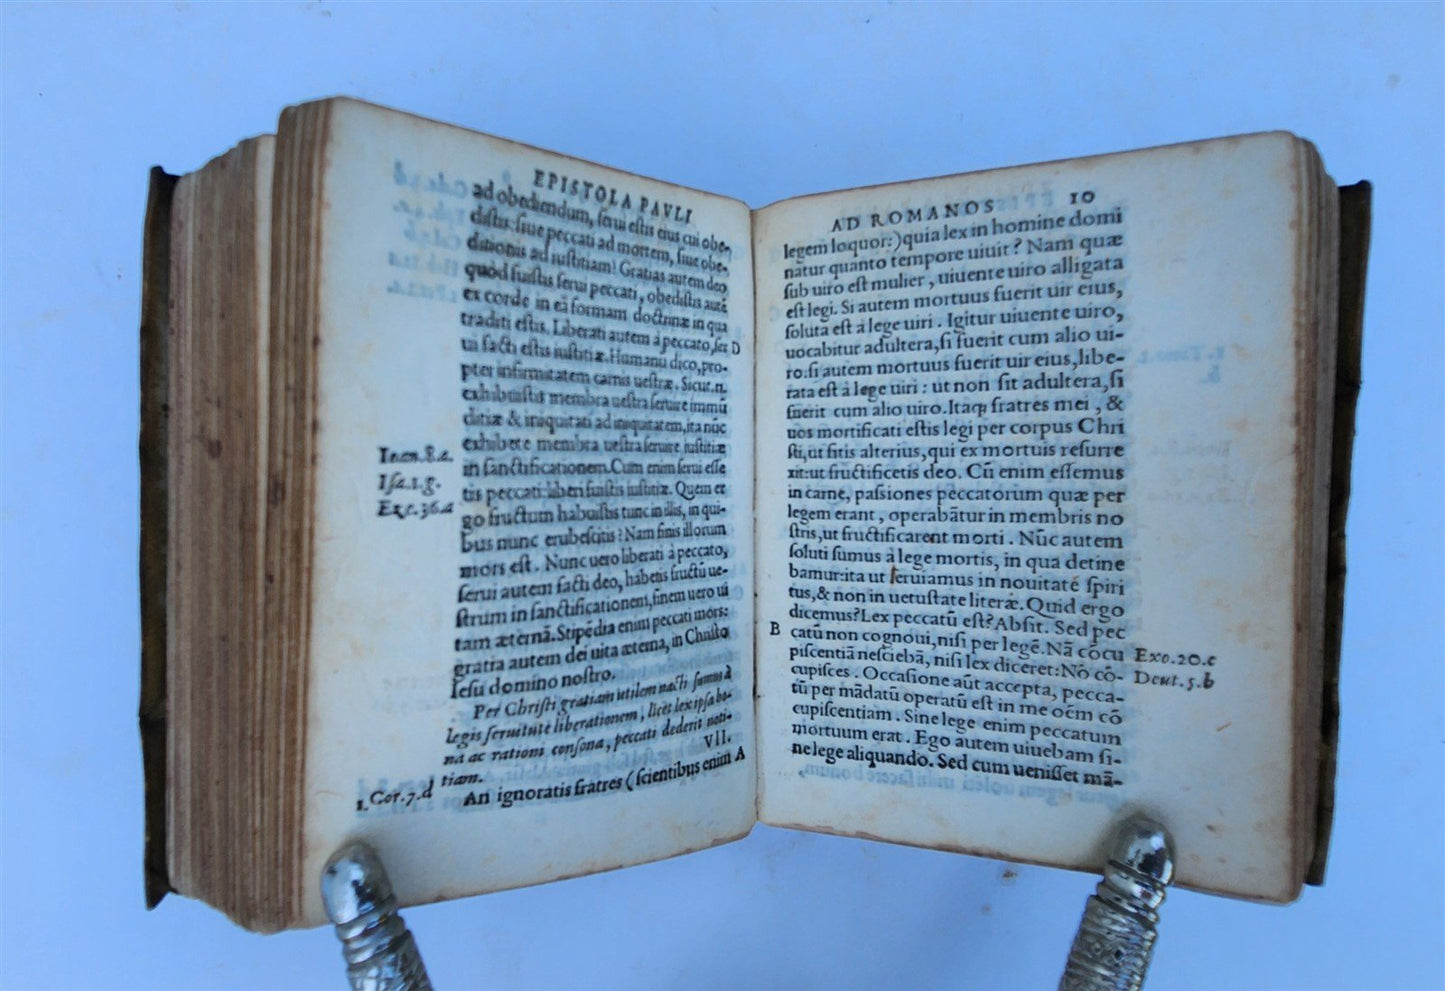 EPISTOLA PAVLI
ad obediendum, serui estis eius cui obe-
distis: siue peccati ad mortem, siue obe-
ditionis ad iustitiam? Gratias autem deo
quòd fuistis serui peccati, obedistis autē
ex corde in eā formam doctrinæ in qua
traditi estis. Liberati autem à peccato, ser
D
ui facti estis iustitiæ. Humanū dico, pro-
pter infirmitatem carnis uestræ. Sicut.n.
exhibuistis membra uestra seruire immū
ditiæ & iniquitati ad iniquitatem, ita nūc
exhibete membra uestra seruire iustitiæ
Ioan.8.e.
in sanctificationem. Cum enim serui esse
Isa.1.g.
tis peccati: liberi fuistis iustitiæ. Quem er
Eze.36.a
go fructum habuistis tunc in illis, in qui-
bus nunc erubescitis? Nam finis illorum
mors est. Nunc uero liberati à peccato,
serui autem facti deo, habetis fructū ue-
strum in sanctificationem, finem uero ui
tam æternā. Stipēdia enim peccati mors:
gratia autem dei uita æterna, in Christo
Iesu domino nostro.
Per Christi gratiam utilem nacti sumus à
legis seruitute liberationem, licet lex ipsa bo-
na ac rationi consona, peccati dederit noti-
tiam.
VII.
1.Cor.7.d
An ignoratis fratres (scientibus enim
A
AD ROMANOS 10
legem loquor:) quia lex in homine domi
natur quanto tempore uiuit? Nam quæ
sub uiro est mulier, uiuente uiro alligata
est legi. Si autem mortuus fuerit uir eius,
soluta est à lege uiri. Igitur uiuente uiro,
uocabitur adultera, si fuerit cum alio ui-
ro. si autem mortuus fuerit uir eius, libe-
rata est à lege uiri: ut non sit adultera, si
fuerit cum alio uiro. Itaq; fratres mei, &
uos mortificati estis legi per corpus Chri
sti, ut sitis alterius, qui ex mortuis resurre
xit: ut fructificetis deo. Cū enim essemus
in carne, passiones peccatorum quæ per
legem erant, operabātur in membris no
stris, ut fructificarent morti. Nūc autem
soluti sumus à lege mortis, in qua detine
bamur: ita ut seruiamus in nouitate spiri
tus, & non in uetustate literæ. Quid ergo
dicemus? Lex peccatū est? Absit. Sed pec
B
catū non cognoui, nisi per legē. Nā cōcu
Exo.20.c
piscentiā nesciebā, nisi lex diceret: Nō cō-
Deut.5.b
cupisces. Occasione aūt accepta, pecca-
tū per mādatū operatū est in me oēm cō
cupiscentiam. Sine lege enim peccatum
mortuum erat. Ego autem uiuebam si-
ne lege aliquando. Sed cum uenisset mā-